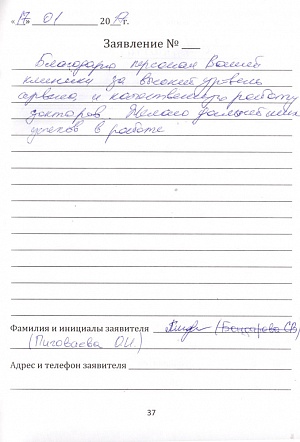 «17» 01 20 г.
Заявление № ___
Благодарю персонал Вашей
клиники за высокий уровень
сервиса и качественную работу
докторов. Желаю дальнейших
успехов в работе
Фамилия и инициалы заявителя (Бондарова СВ)
(Пиговаева О.И.)
Адрес и телефон заявителя
37